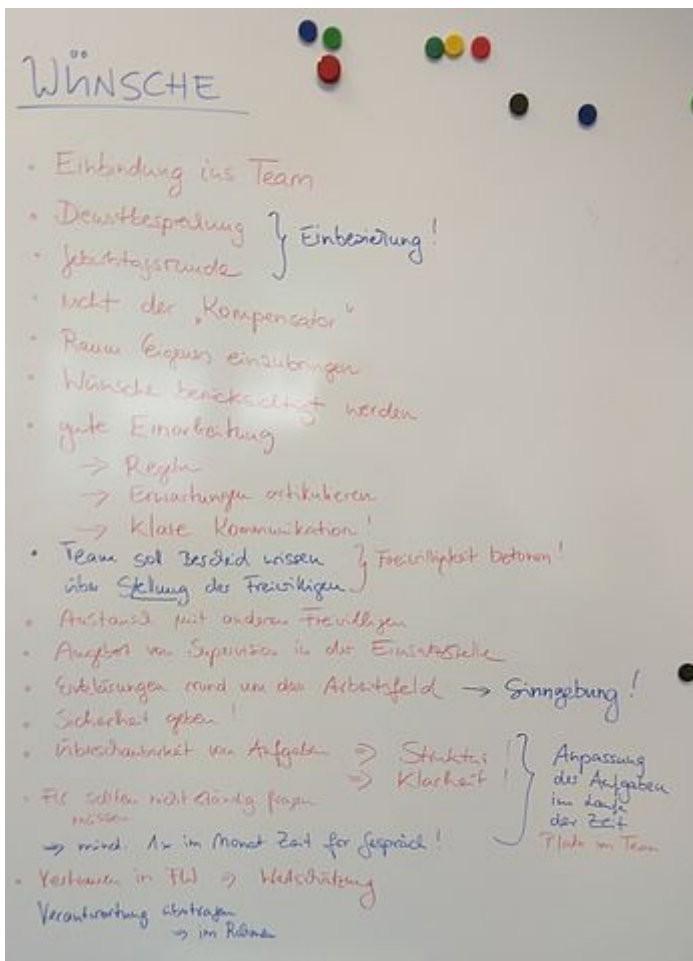 WÜNSCHE
• Einbindung ins Team
• Dienstbesprechung } Einbeziehung!
• Geburtstagsrunde
• nicht der „Kompensator“
• Raum Eigenes einzubringen
• Wünsche berücksichtigt werden
• gute Einarbeitung
→ Regeln
→ Erwartungen artikulieren
→ Klare Kommunikation!
• Team soll Bescheid wissen } Freiwilligkeit betonen!
über Stellung der Freiwilligen
• Austausch mit anderen Freiwilligen
• Angebot von Supervision in der Einsatzstelle
• Erklärungen rund um das Arbeitsfeld → Sinngebung!
• Sicherheit geben!
• Überschaubarkeit von Aufgaben => Struktur! } Anpassung
=> Klarheit! der Aufgaben
• sollten nicht ständig fragen im Laufe
müssen der Zeit
=> mind. 1x im Monat Zeit for Gespräch! Platz im Team
• Vertrauen in => Wertschätzung
Verantwortung übertragen
=> im Rahmen